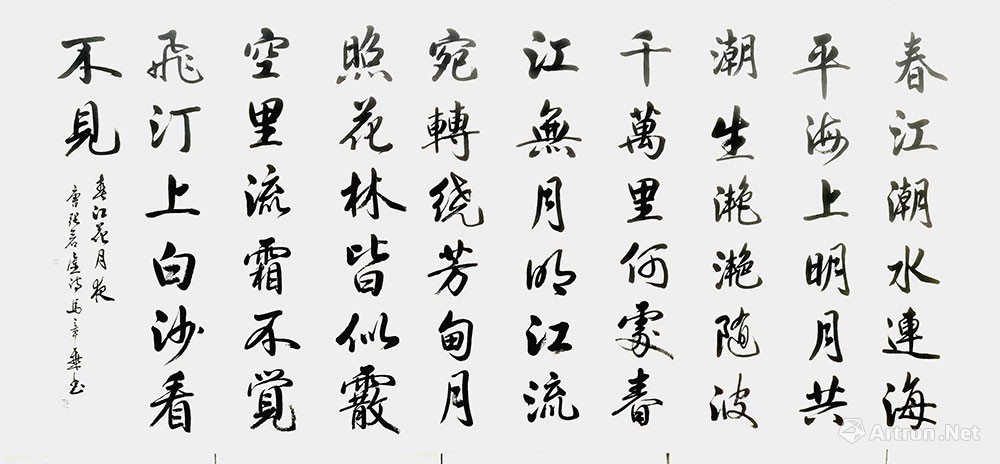 春江潮水連海
平海上明月共
潮生滟滟随波
千萬里何處春
江無月明江流
宛轉绕芳甸月
照花林皆似霰
空里流霜不覺
飛汀上白沙看
不見
春江花月夜
唐張若虚诗馬章书
Artron.Net